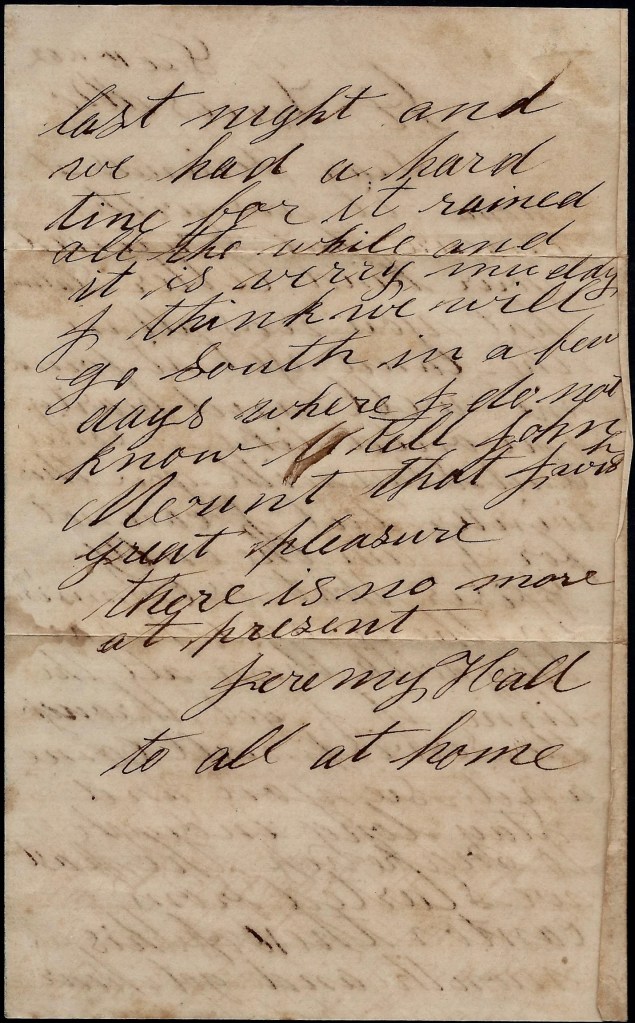 last night and
we had a hard
tine for it rained
all the while and
it is verry muddy
I think we will
go South in a few
days where I do not
know tell John
Mount that I wish
great pleasure
there is no more
at present
Jeremy Hall
to all at home